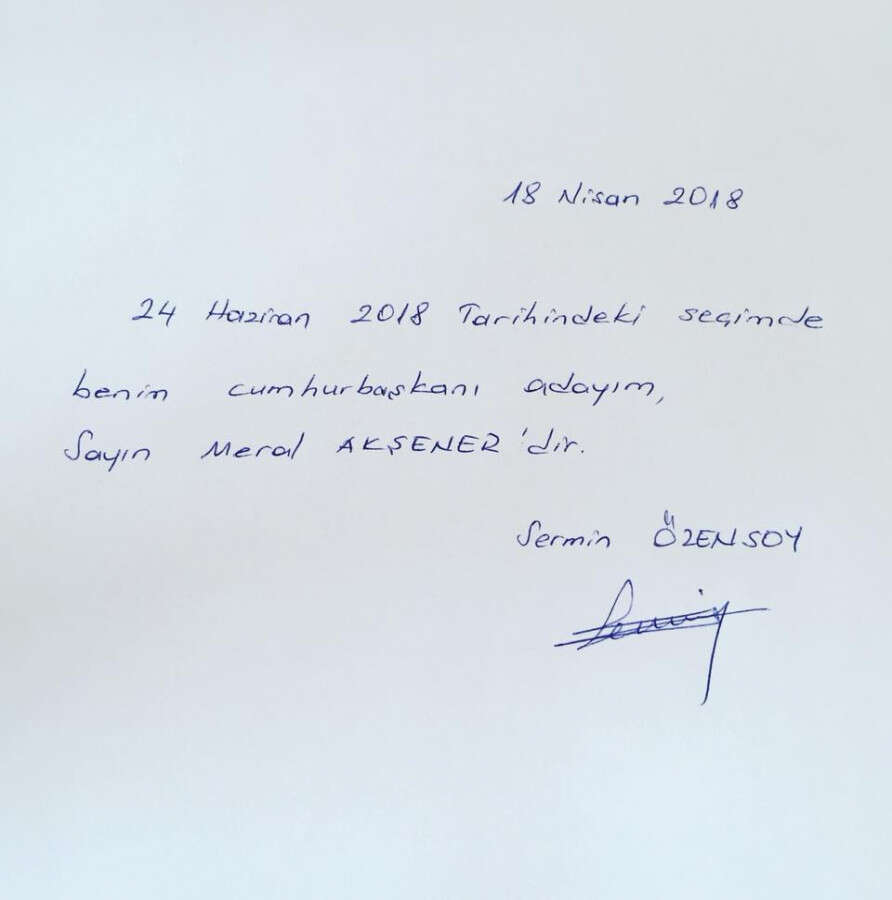 18 Nisan 2018
24 Haziran 2018 Tarihindeki seçimde
benim cumhurbaşkanı adayım,
Sayın Meral AKŞENER'dir.
Sermin ÖZENSOY